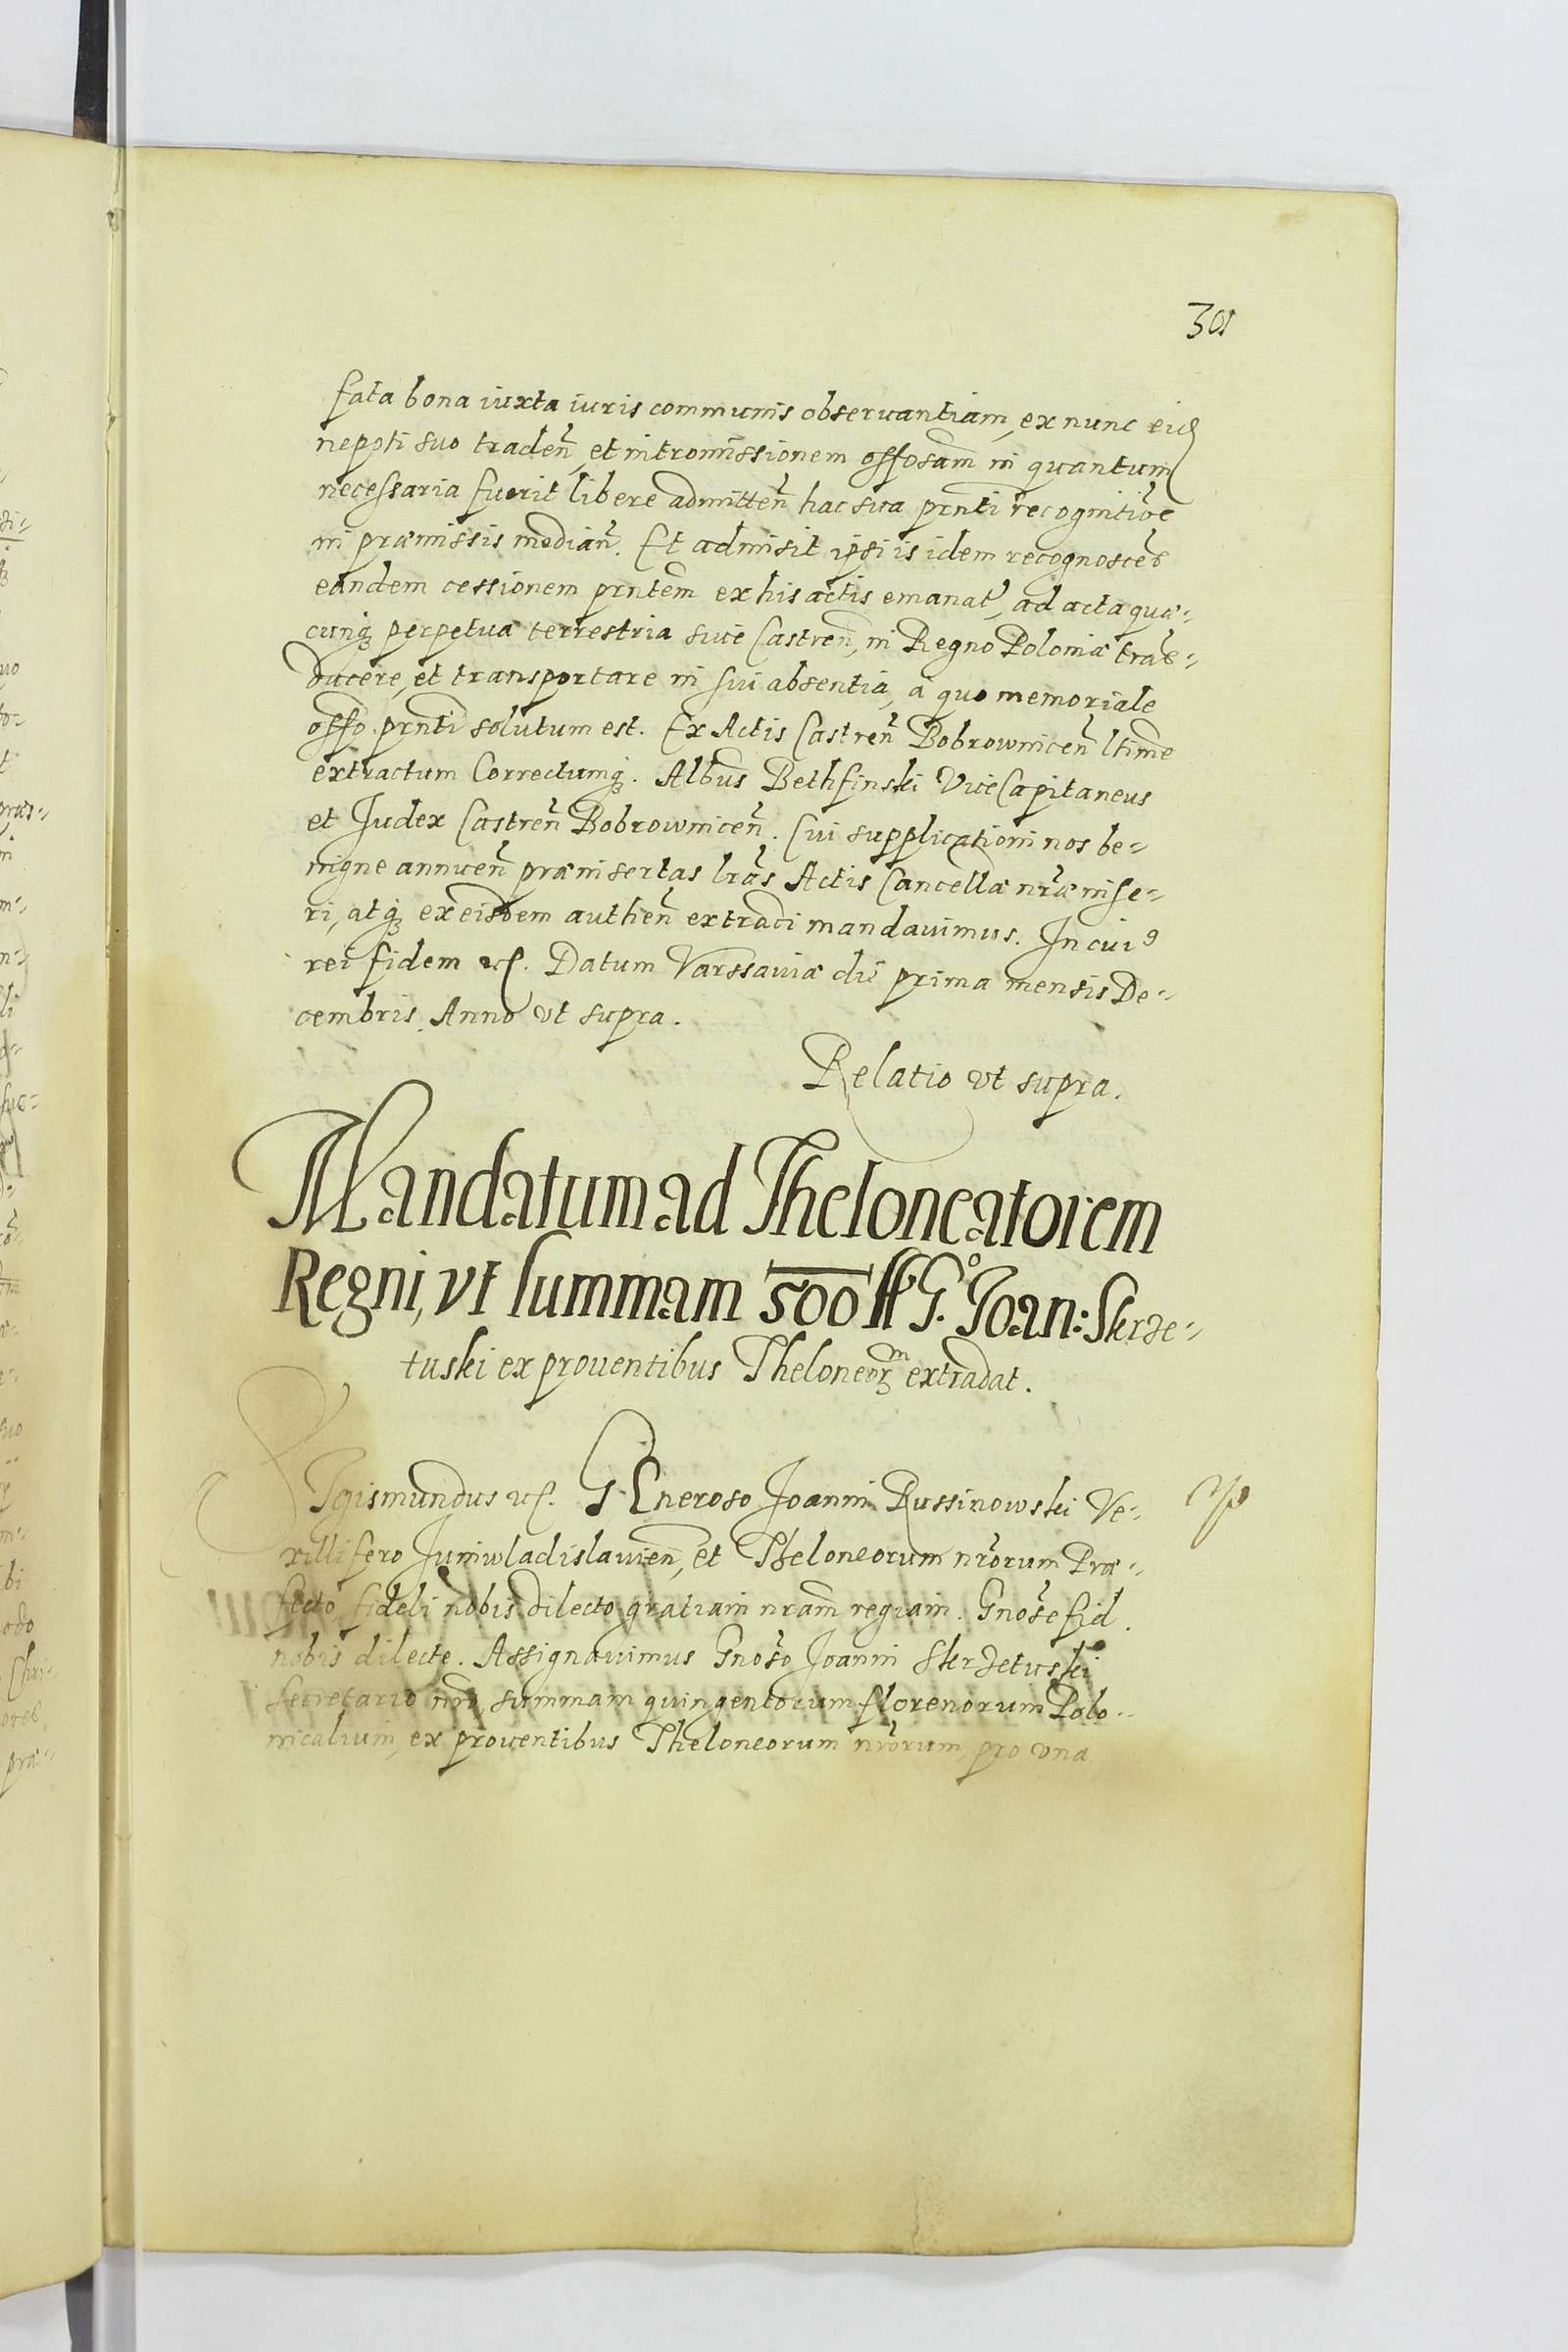 301
fata bona iuxta iuris communis obseruantiam, ex nunc eid
nepoti suo traden̄, et intromissionem offosam in quantum
necessaria fuerit libere admitten̄ hac sua prnti recognitiōe
in præmissis median̄. Et admisit ipsi is idem recognosceɞ
eandem cessionem prntem ex his actis emanat̄, ad acta quæ-
cunqꝫ perpetua terrestria siue Castren̄, in Regno Poloniæ tra-
ducere, et transportare in sui absentia, a quo memoriale
offo prnti solutum est. Ex Actis Castren̄ Bobrownicen̄ ltime
extractum Correctumqꝫ. Albus Bethfinski ViceCapitaneus
et Judex Castren̄ Bobrownicen̄. Cui supplicationi nos be-
nigne annuen̄ præinsertas lrās Actis Cancellæ nrǣ inse-
ri, atqꝫ ex eisdem authen̄ extradi mandauimus. In cuiꝰ
rei fidem etc. Datum Varssauiæ die prima mensis De-
cembris, Anno vt supra.
Relatio vt supra.
Mandatum ad Theloneatorem
Regni, vt summam 500 fl G.o Joan: Skrze-
tuski ex prouentibus Theloneorꝫm extradat.
SIgismundus etc. GEneroso Joanni Russinowski Ve-
xillifero Juniwladislauien̄, et Theloneorum nrōrum Præ-
fecto, fideli nobis dilecto gratiam nrām regiam. Gnōse fid.
nobis dilecte. Assignauimus Gnōso Joanni Skrzetuski
Secretario nrō, summam quingentorum florenorum Polo-
nicalium, ex prouentibus Theloneorum nrōrum, pro vna